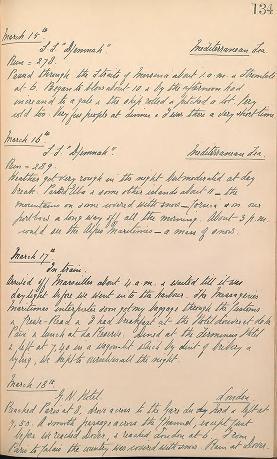 134
March 15th
S.S. "Djemnah" Mediterranean Sea.
Run = 278.
Passed through the Straits of Messina about 1 a.m. & Stromboli
at 6. Began to blow about 10 & by the afternoon had
increased to a gale & the ship rolled & pitched a lot. Very
cold too. Very few people at dinner & I was there a very short time.
March 16th
S.S. "Djemnah" Mediterranean Sea.
Run = 289.
Weather got very rough in the night but moderated at day
break. Passed & some other islands about 11 – the
mountains on some covered with snow – Corsica on our
port bow a long way off all the morning. About 3 p.m.
could see the Alpes Maritimes – a mass of snow.
March 17th
In train.
Arrived off Marseilles about 4 a.m. & waited till it was
daylight before we went into the harbour. The Messageries
Maritimes interpreter soon got my baggage through the Customs
& had breakfast at the Hotel du
& lunch at La Reserve. Dined at the Terminus Hotel
& left at 7. in a wagon lit
by snow all the night.
March 18th
G.N. Hotel. London
Reached Paris at 8, drove across to the Gare du Nord & left at
9.50. A smooth passage across the Channel, except just
before we reached Dover, & reached London at 6. From
Paris to Calais the country was covered with snow. Rain at Dover.